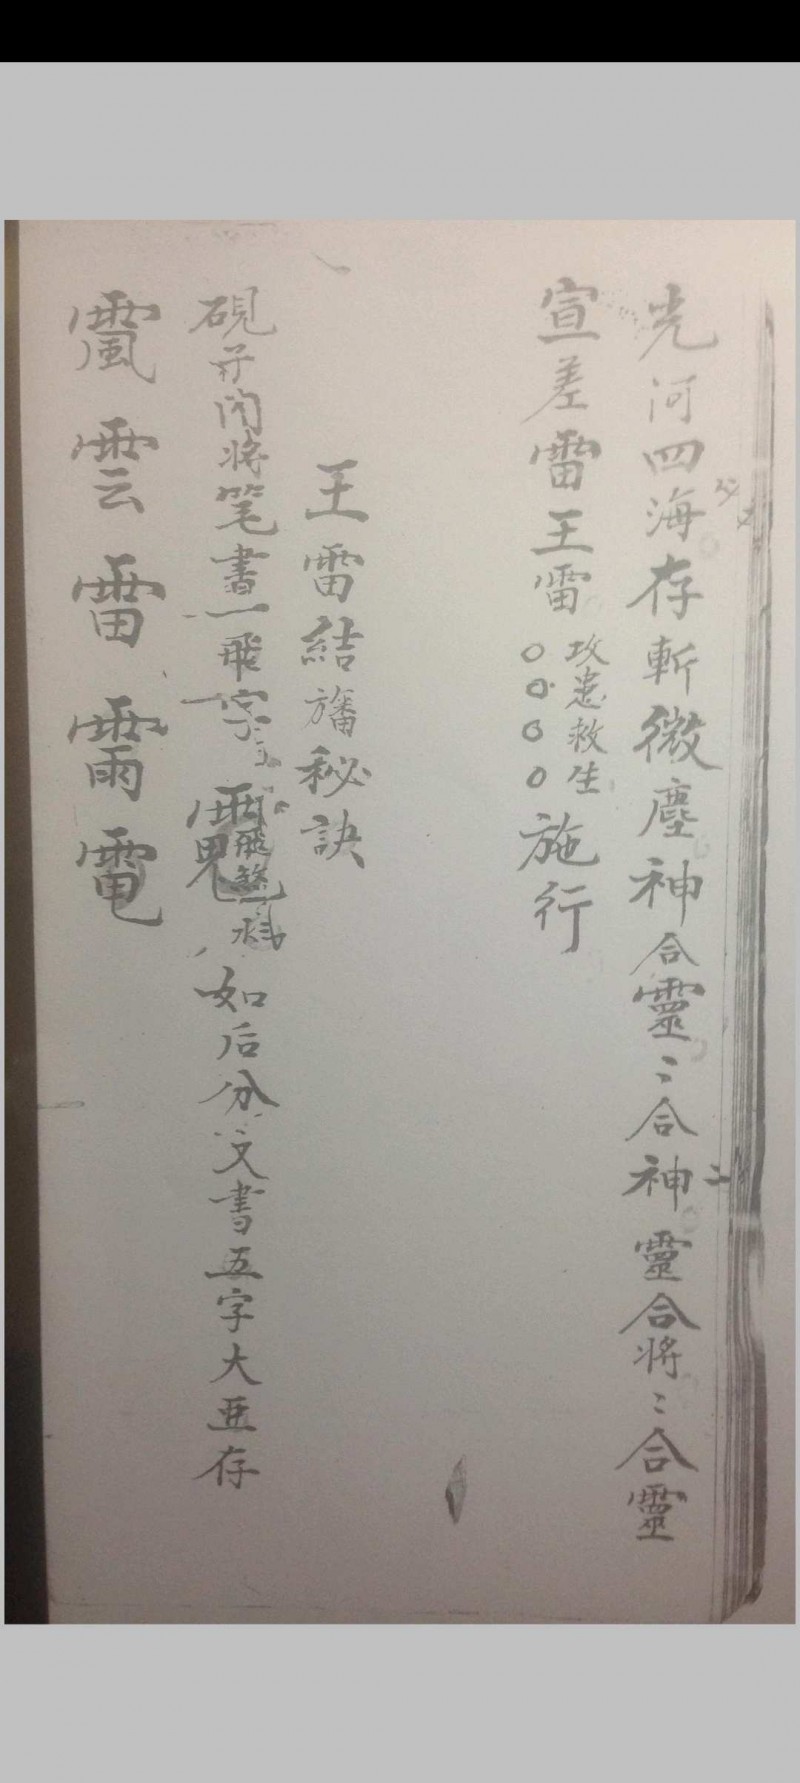 光河四海存斬微塵神合靈〻合神〻靈合將〻合靈
宣差雷王雷攻患救生〇〇〇〇施行
王雷結旛秘訣
硯并閃將笔書一飛字 如后分文書五字大亜存
雲雷電